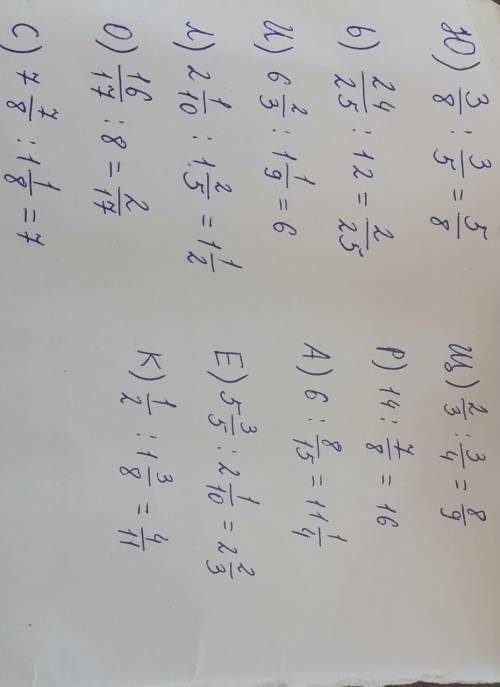 Ю) 3/8 : 3/5 = 5/8
Ь) 24/25 : 12 = 2/25
И) 6 2/3 : 1 1/9 = 6
Л) 2 1/10 : 1 2/5 = 1 1/2
О) 16/17 : 8 = 2/17
С) 7 7/8 : 1 1/8 = 7
Ш) 2/3 : 3/4 = 8/9
Р) 14 : 7/8 = 16
А) 6 : 8/15 = 11 1/4
Е) 5 3/5 : 2 1/10 = 2 2/3
К) 1/2 : 1 3/8 = 4/11